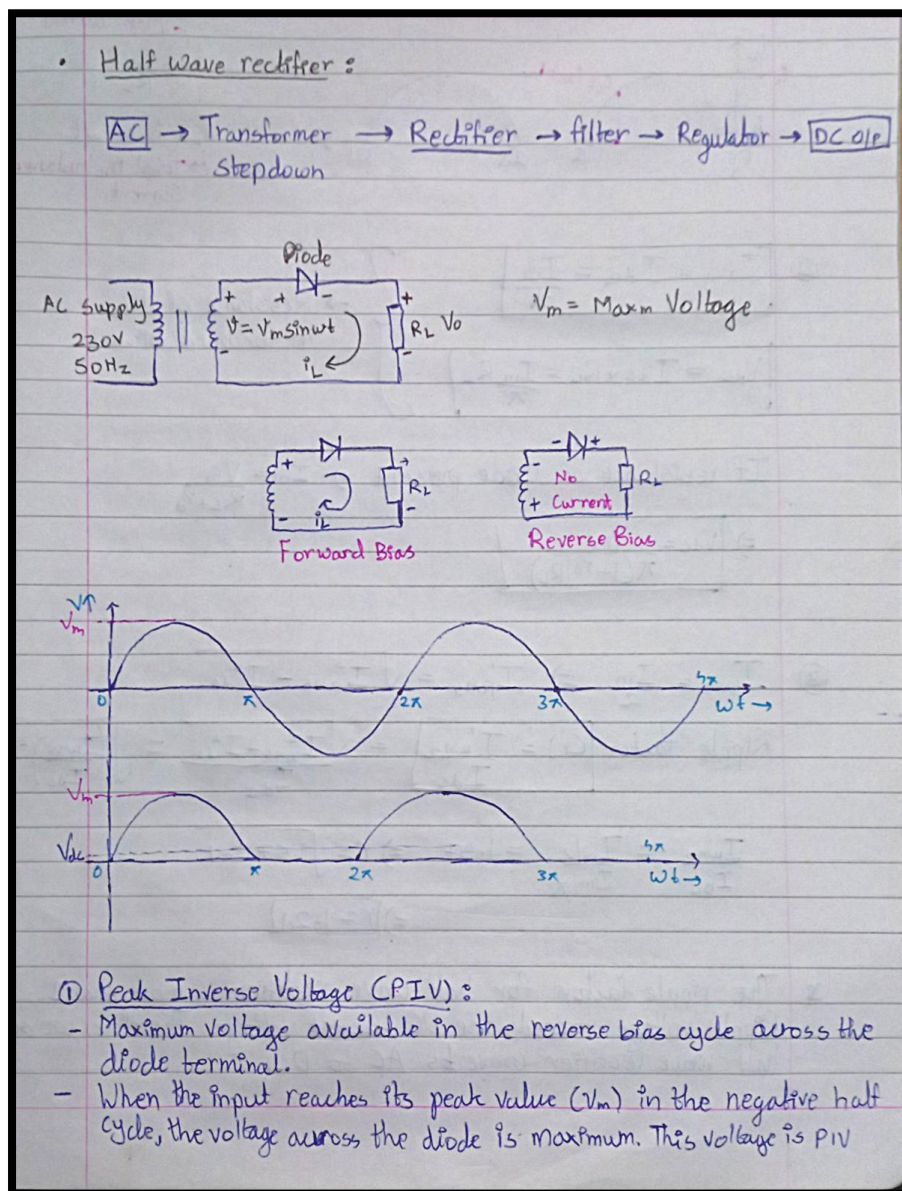 • Half wave rectifier :
AC → Transformer → Rectifier → filter → Regulator → DC O/P
stepdown
Diode
AC Supply
230V
50Hz
+ + - +
V = Vm sinωt
- iL -
RL Vo
Vm = Maxm Voltage
+ +
iL RL
- -
Forward Bias
- +
- No RL
+ Current
Reverse Bias
V↑
Vm
0 π 2π 3π 4π
ωt →
Vm
Vdc
0 π 2π 3π 4π
ωt →
① Peak Inverse Voltage (PIV) :
- Maximum voltage available in the reverse bias cycle across the
diode terminal.
- When the input reaches its peak value (Vm) in the negative half
cycle, the voltage across the diode is maximum. This voltage is PIV